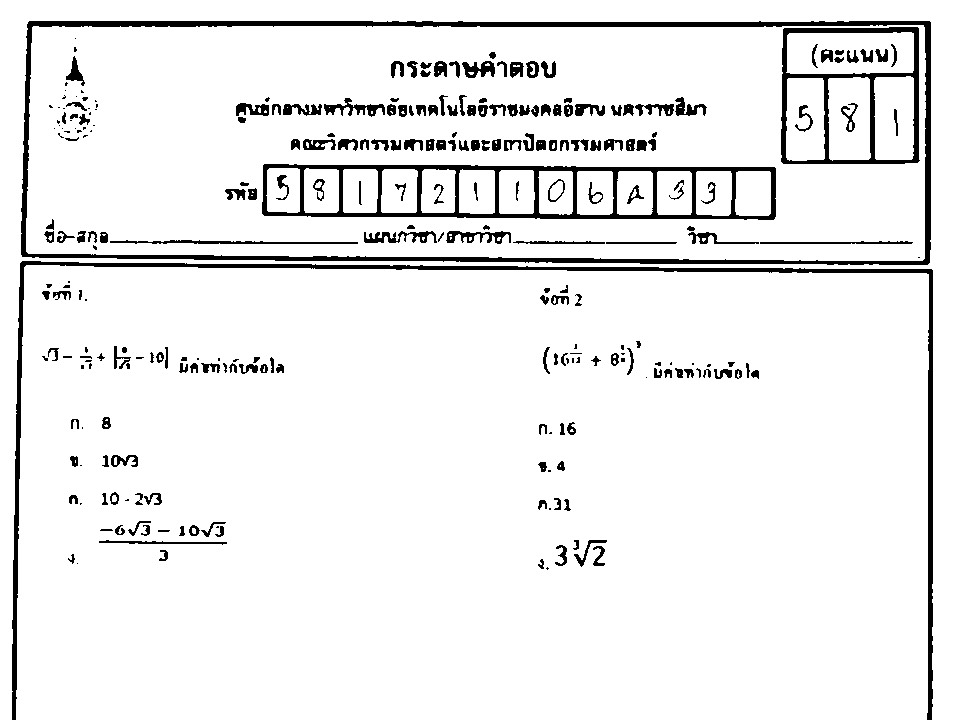 กระดาษคำตอบ
(คะแนน)
ศูนย์กลางมหาวิทยาลัยเทคโนโลยีราชมงคลอีสาน นครราชสีมา
5 8 1
คณะวิศวกรรมศาสตร์และสถาปัตยกรรมศาสตร์
รหัส 5 8 1 7 2 1 1 0 6 3 3
ชื่อ-สกุล แผนกวิชา/สาขาวิชา วิชา
ข้อที่ 1.
√3 - + - 10| มีค่าเท่ากับข้อใด
ก. 8
ข. 10√3
ค. 10 - 2√3
ง. \frac{-6√3 - 10√3}{3}
ข้อที่ 2
มีค่าเท่ากับข้อใด
ก. 16
ข. 4
ค.31
ง. 3∛2